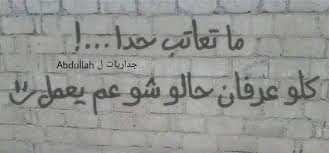 ما تعاتب حدا...!
جداريات ل Abdullah
كلو عرفان حالو شو عم يعمل =))